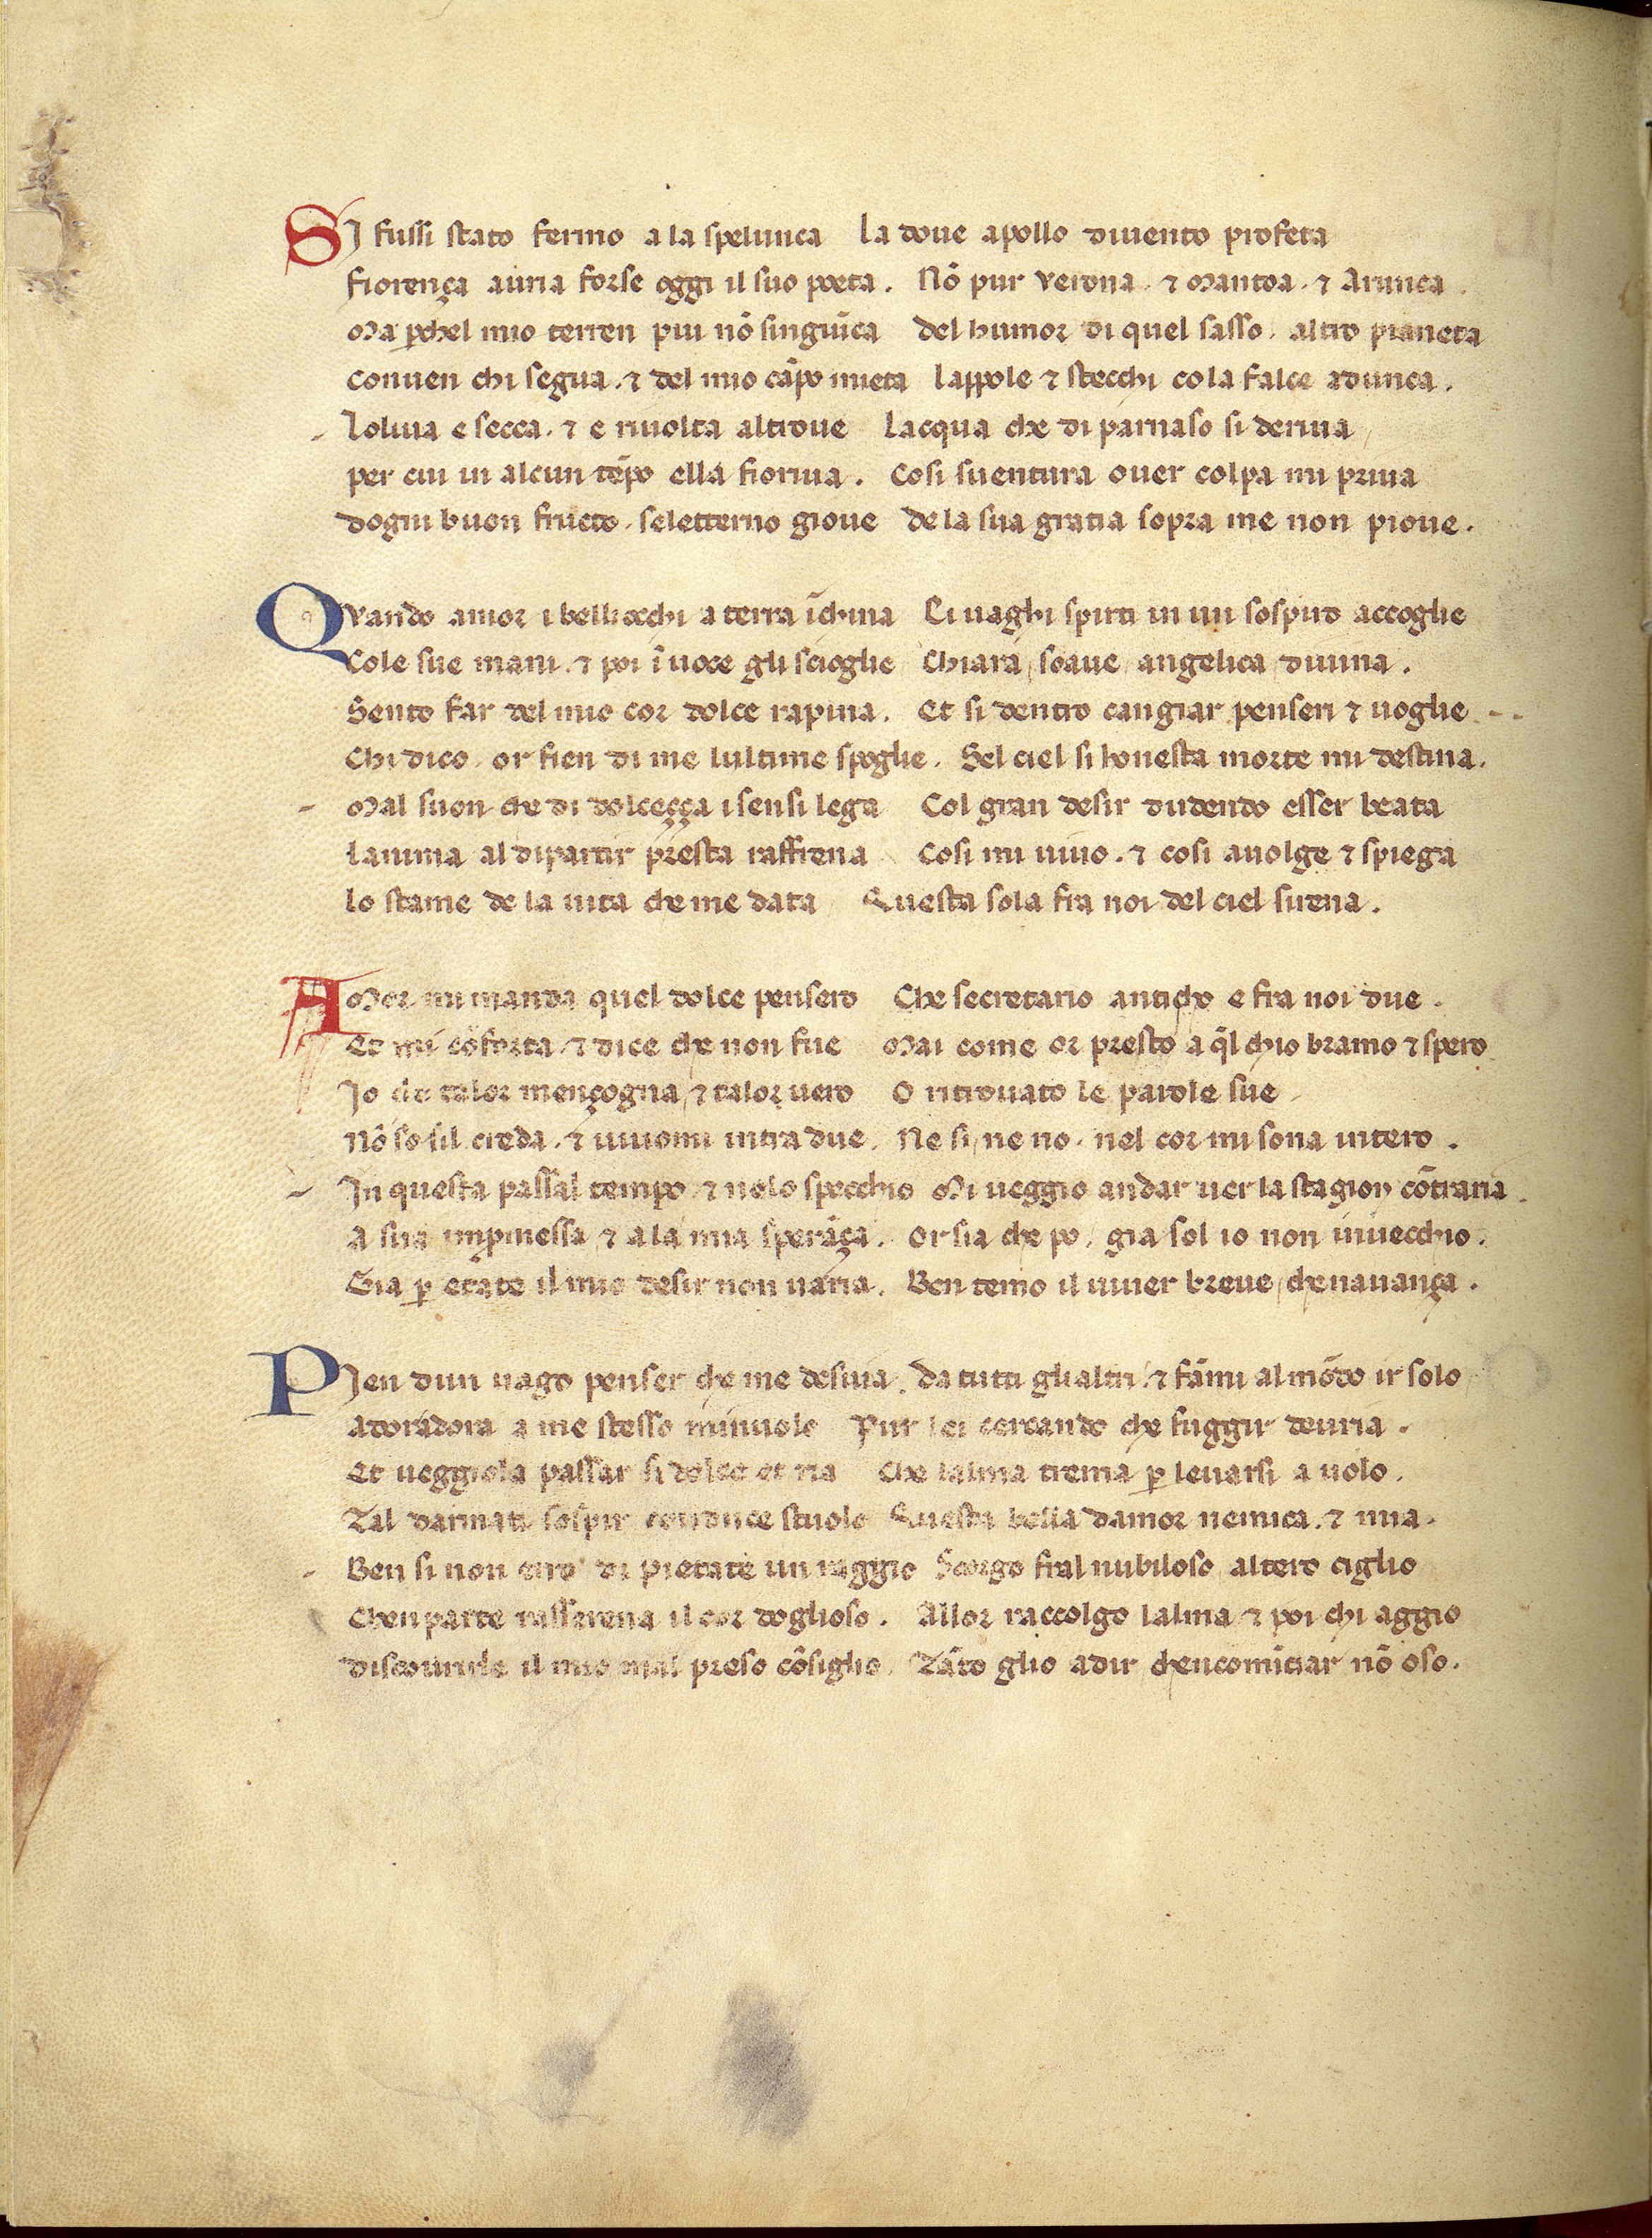 SI fussi stato fermo a la spelunca La doue apollo diuento profeta
fiorença auria forse oggi il suo poeta. Nō pur verona. ⁊ Mantoa. ⁊ Arunca.
Ma ꝑchel mio terren piu nō singiūca del humor di quel sasso. altro pianeta
conuen chi segua. ⁊ del mio cāpo mieta Lappole ⁊ stecchi co la falce adunca.
Loliua e secca. ⁊ e riuolta altroue Lacqua che di parnaso si deriua
per cui in alcun tēpo ella fioriua. Cosi suentura ouer colpa mi priua
dogni buon fructo. seletterno gioue de la sua gratia sopra me non pioue.
QVando amor i belliocchi a terra īchina Ei uaghi spirti in un sospiro accoglie
Cole sue mani. ⁊ poi ī uoce gli scioglie Chiara, soaue, angelica, diuina.
Sento far del mio cor dolce rapina. Et si dentro cangiar penseri ⁊ uoglie
Chi dico. or fien di me lultime spoglie. Sel ciel si honesta morte mi destina.
Mal suon che di dolceçça i sensi lega Col gran desir dudendo esser beata
Lanima al dipartir presta raffrena Cosi mi uiuo. ⁊ cosi auolge ⁊ spiega
lo stame de la uita che me data Questa sola fra noi del ciel sirena.
AMor mi manda quel dolce pensero Che secretario anticho e fra noi due.
Et mi cōforta. ⁊ dice che non fue Mai come or presto a q̄l chio bramo ⁊ spero
Io che talor mençogna, ⁊ talor uero O ritrouato le parole sue
Nō so sil creda. ⁊ uiuomi intra due. Ne si, ne no. nel cor mi sona intero.
In questa passal tempo, ⁊ nelo specchio Mi ueggio andar uer la stagion cōtraria.
A sua impmessa, ⁊ a la mia sperāça. Or sia che po, gia sol io non inuecchio.
Gia ꝑ etate il mio desir non uaria. Ben temo il uiuer breue, chenauança.
PIen dun uago penser che me desuia. da tutti glialtri. ⁊ fāmi al mōdo ir solo
Adoradora a me stesso minuolo Pur lei cercando che fuggir deuria.
Et ueggiola passar si dolce et ria Che lalma trema ꝑ leuarsi a uolo.
Tal darmati sospir conduce stuolo Questa bella damor nemica. ⁊ mia.
Ben si non erro di pietate un raggio Scorgo fral nubiloso, altero ciglio
Chenparte rasserena il cor doglioso. Allor raccolgo lalma ⁊ poi chi aggio
discouirle il mio mal preso cōsiglio. Tāto glio adir, chencomīciar nō oso.